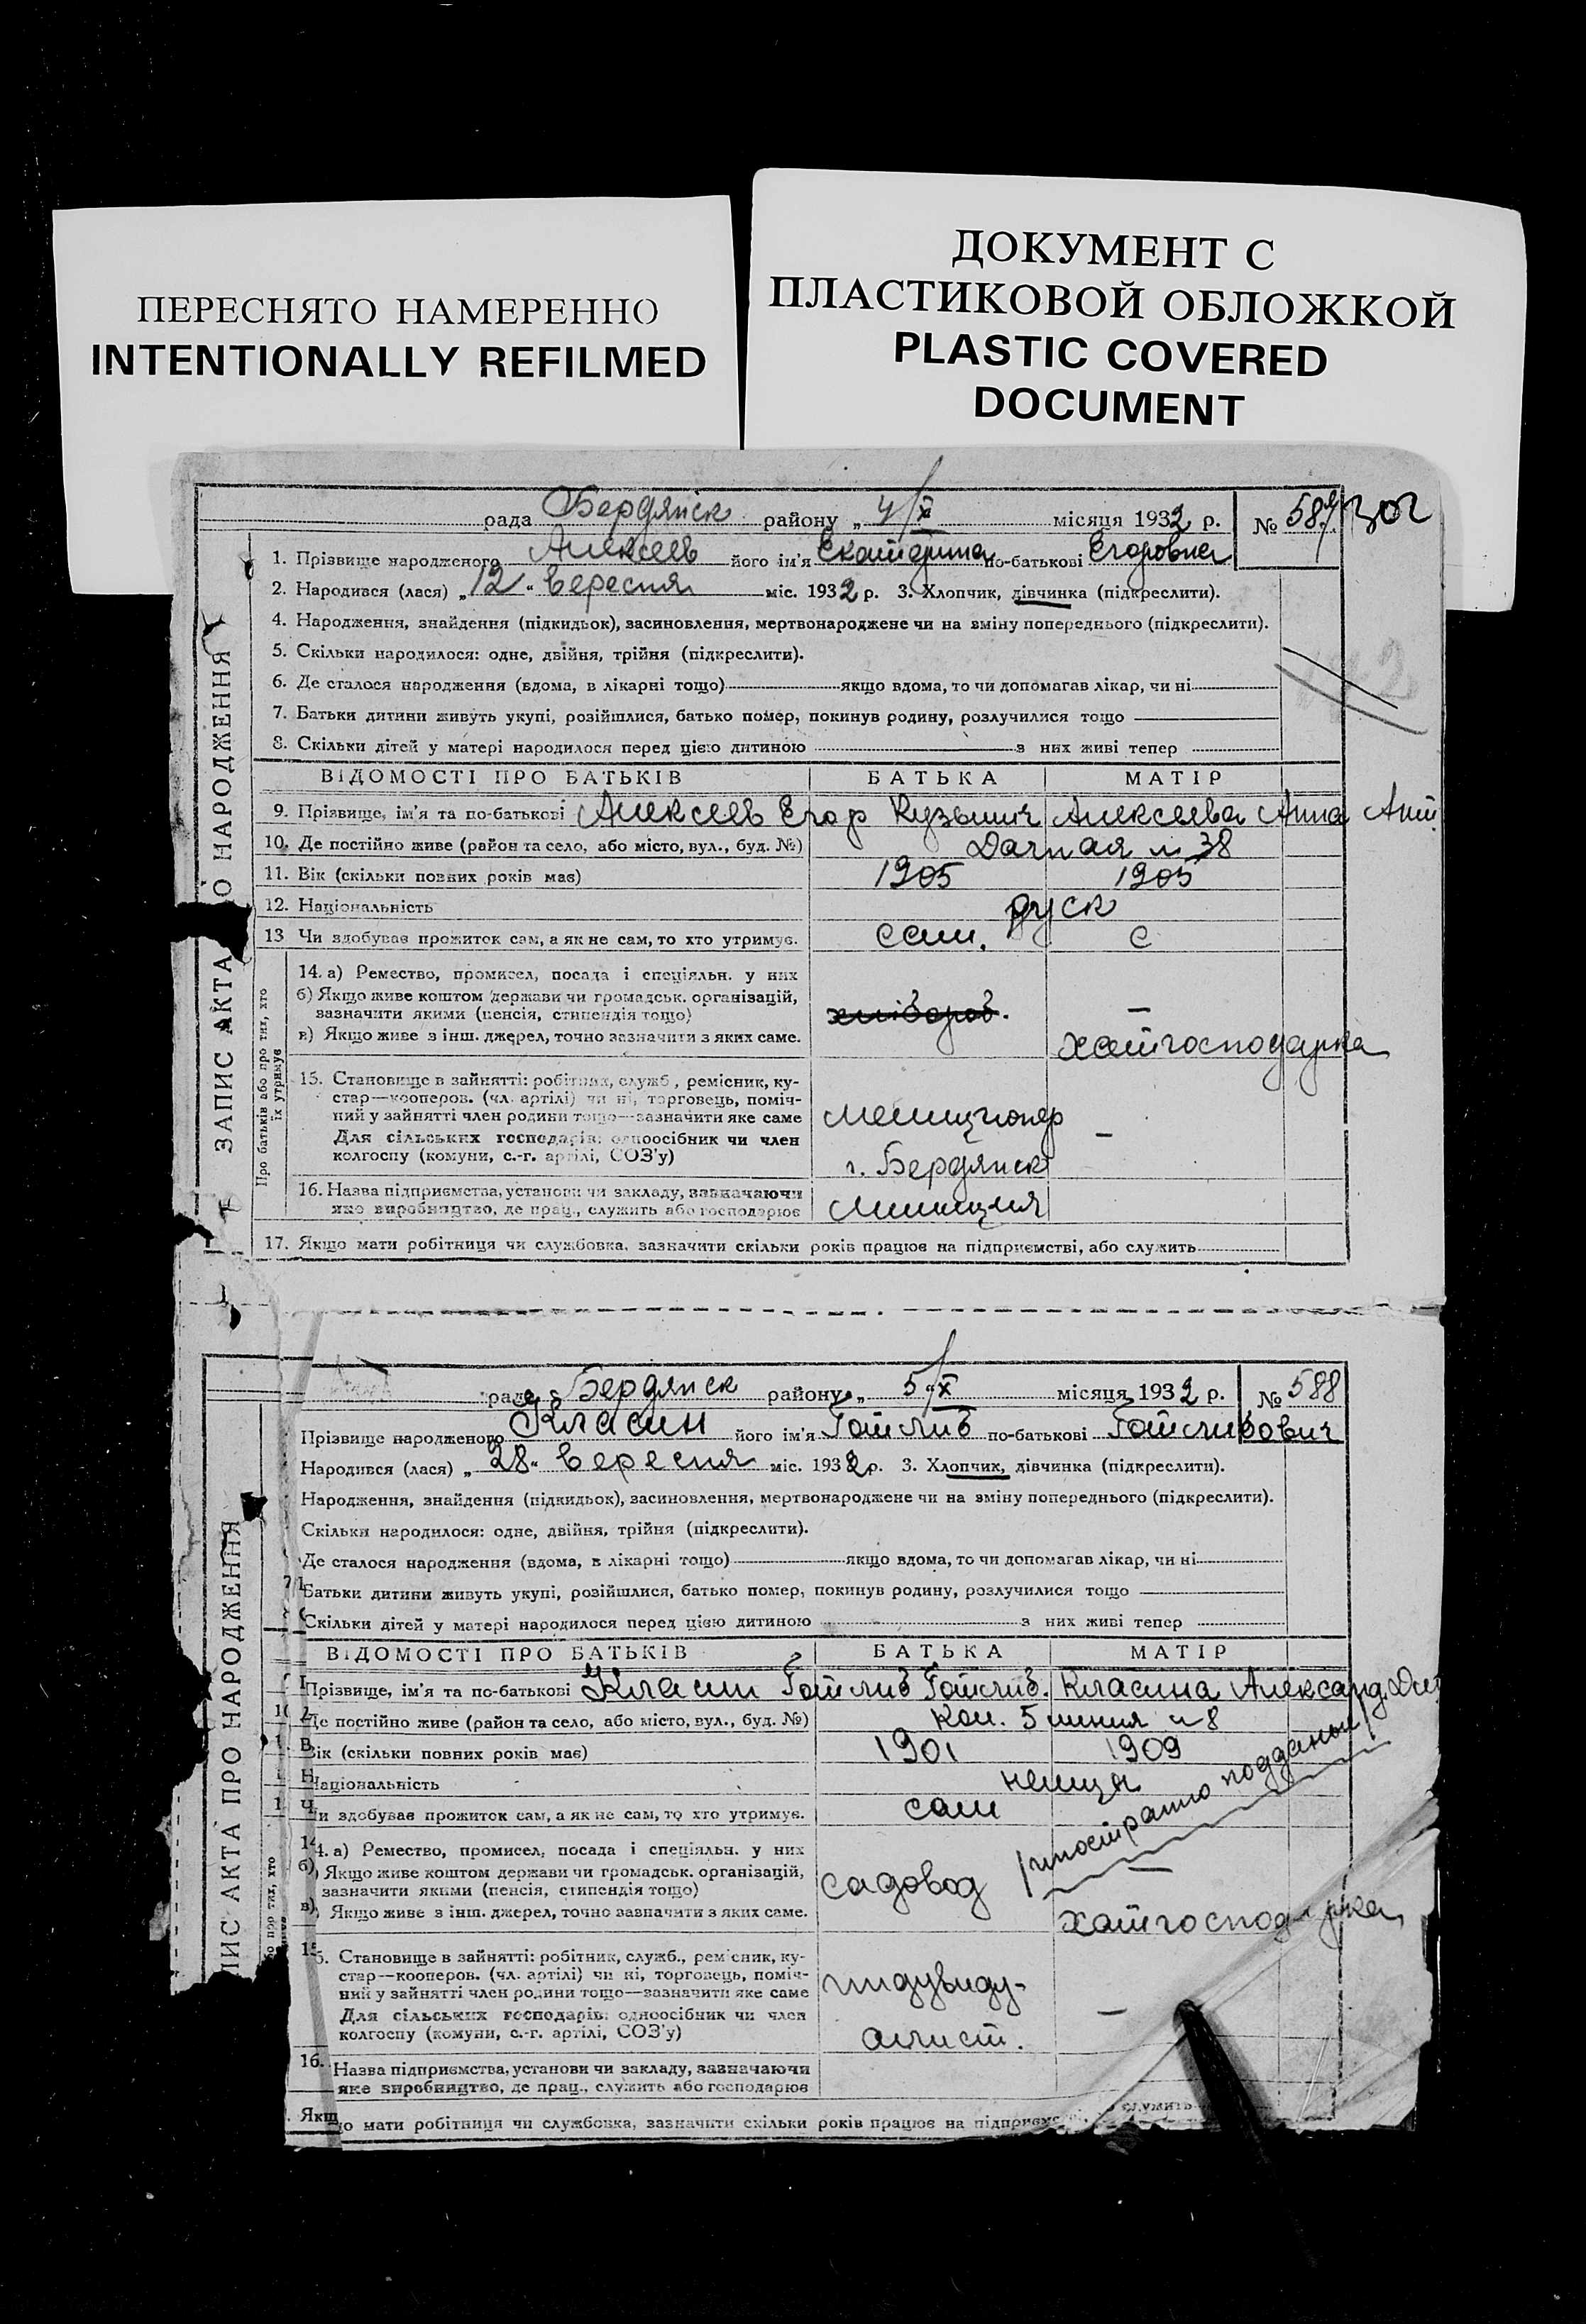 ПЕРЕСНЯТО НАМЕРЕННО
INTENTIONALLY REFILMED
ДОКУМЕНТ С
ПЛАСТИКОВОЙ ОБЛОЖКОЙ
PLASTIC COVERED
DOCUMENT
рада Бердянск району „ 4/X місяця 1932 р. № 587 302
1. Прізвище народженого Алексеев його ім'я Екатерина по-батькові Егоровна
2. Народився (лася) „12" вересня міс. 1932 р. 3. Хлопчик, дівчинка (підкреслити).
4. Народження, знайдення (підкидьок), засиновлення, мертвонароджене чи на зміну попереднього (підкреслити).
5. Скільки народилося: одне, двійня, трійня (підкреслити).
6. Де сталося народження (вдома, в лікарні тощо) якщо вдома, то чи допомагав лікар, чи ні
7. Батьки дитини живуть укупі, розійшлися, батько помер, покинув родину, розлучилися тощо
8. Скільки дітей у матері народилося перед цією дитиною з них живі тепер
ЗАПИС АКТА НАРОДЖЕННЯ
ВІДОМОСТІ ПРО БАТЬКІВ БАТЬКА МАТІР
9. Прізвище, ім'я та по-батькові Алексеев Егор Кузьмич Алексеева Анна Ант
10. Де постійно живе (район та село, або місто, вул., буд. №) Дачная 38
11. Вік (скільки повних років має) 1905 1905
12. Національність руск
13 Чи здобуває прожиток сам, а як не сам, то хто утримує. сам. с
Про батьків або про тих, хто їх утримує
14. а) Ремество, промисел, посада і спеціяльн. у них
б) Якщо живе коштом держави чи громадськ. організацій,
зазначити якими (пенсія, стипендія тощо) —
в) Якщо живе з інш. джерел, точно зазначити з яких саме. хатгосподарка
15. Становище в зайнятті: робітник, служб., ремісник, ку-
стар—кооперов. (чл. артілі) чи ні, торговець, поміч-
ний у зайнятті член родини тощо—зазначити яке саме милиционер
Для сільських господарів: одноосібник чи член —
колгоспу (комуни, с.-г. артілі, СОЗ'у) г. Бердянск
16. Назва підприємства, установи чи закладу, зазначаючи
яке виробництво, де прац., служить або господарює милиция
17. Якщо мати робітниця чи службовка, зазначити скільки років працює на підприємстві, або служить
рада Бердянск району „ 5/X місяця 1932 р. № 588
Прізвище народженого Класин його ім'я Готлиб по-батькові Готлибович
Народився (лася) „28" вересня міс. 1932 р. 3. Хлопчик, дівчинка (підкреслити).
Народження, знайдення (підкидьок), засиновлення, мертвонароджене чи на зміну попереднього (підкреслити).
Скільки народилося: одне, двійня, трійня (підкреслити).
Де сталося народження (вдома, в лікарні тощо) якщо вдома, то чи допомагав лікар, чи ні
Батьки дитини живуть укупі, розійшлися, батько помер, покинув родину, розлучилися тощо
Скільки дітей у матері народилося перед цією дитиною з них живі тепер
ПИС АКТА ПРО НАРОДЖЕННЯ
ВІДОМОСТІ ПРО БАТЬКІВ БАТЬКА МАТІР
Прізвище, ім'я та по-батькові Класин Готлиб Готлиб. Класина Александ.
Де постійно живе (район та село, або місто, вул., буд. №) Кол. 5 линия 8
Вік (скільки повних років має) 1901 1909
Національність немцы
Чи здобуває прожиток сам, а як не сам, то хто утримує. сам
иностранно подданый
14. а) Ремество, промисел, посада і спеціяльн. у них
б) Якщо живе коштом держави чи громадськ. організацій, садовод —
зазначити якими (пенсія, стипендія тощо)
в) Якщо живе з інш. джерел, точно зазначити з яких саме. хатгосподарка
15. Становище в зайнятті: робітник, служб., ремісник, ку-
стар—кооперов. (чл. артілі) чи ні, торговець, поміч- индувиду-
ний у зайнятті член родини тощо—зазначити яке саме
Для сільських господарів: одноосібник чи член —
колгоспу (комуни, с.-г. артілі, СОЗ'у) алист.
16. Назва підприємства, установи чи закладу, зазначаючи
яке виробництво, де прац., служить або господарює
Якщо мати робітниця чи службовка, зазначити скільки років працює на підприємс служить